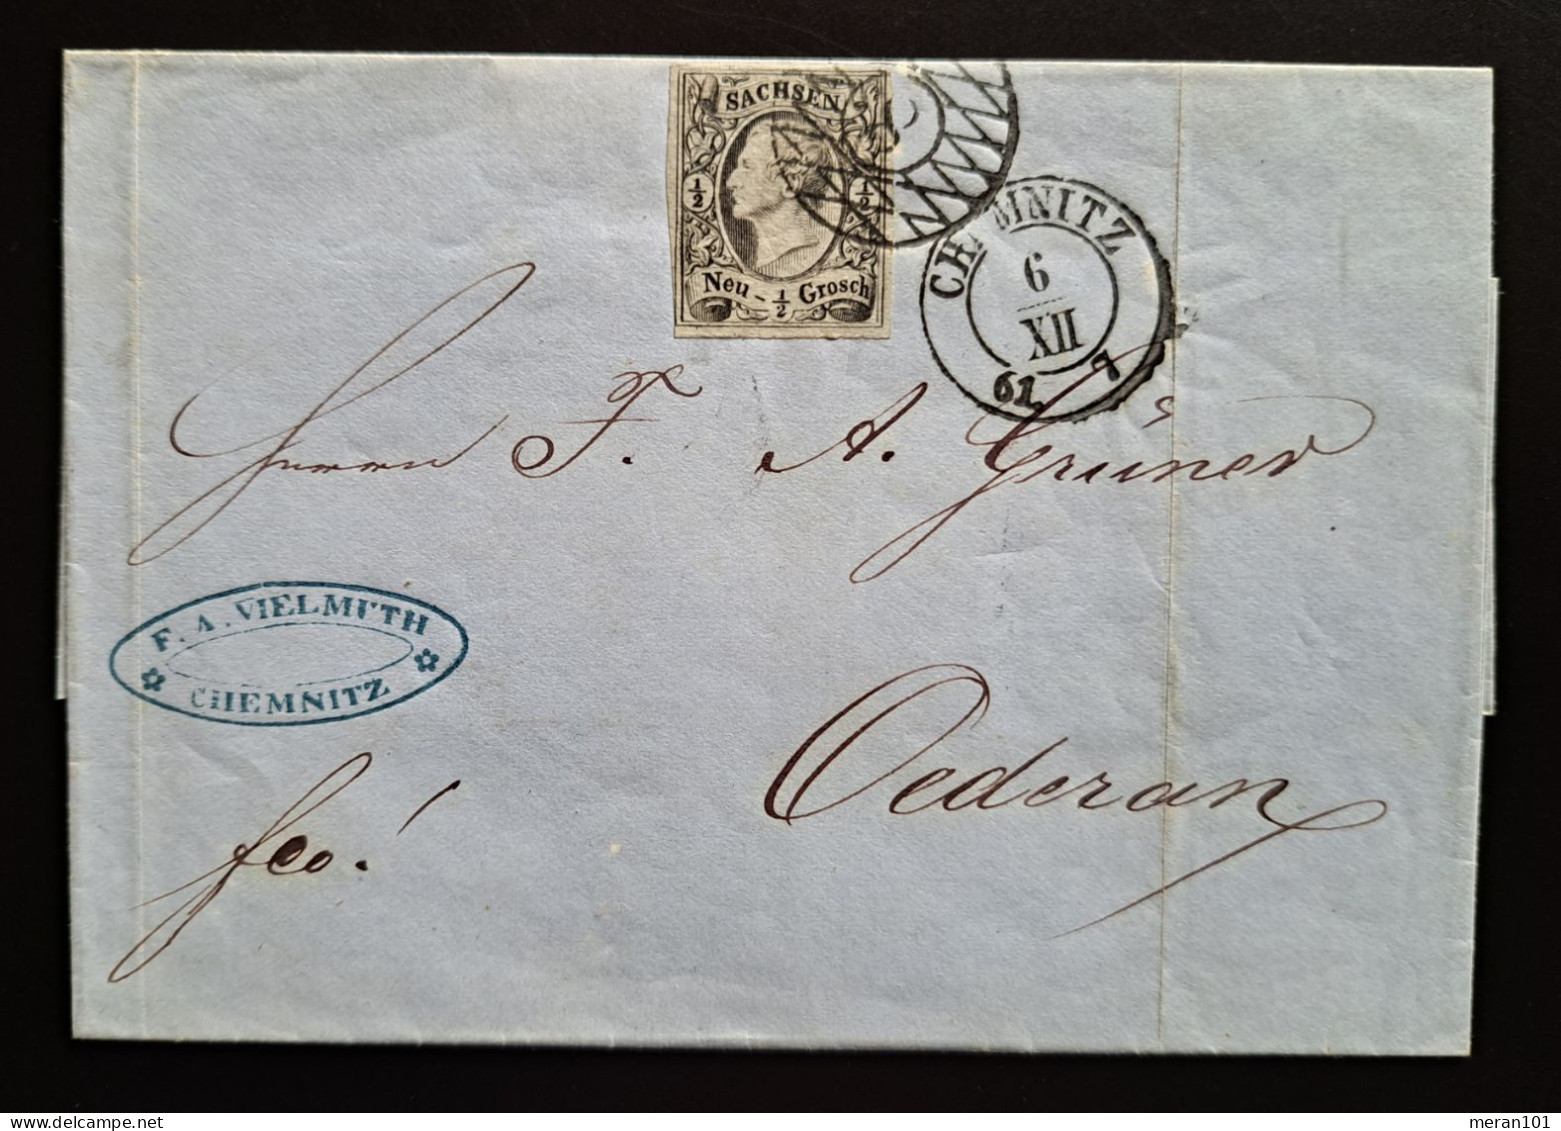 SACHSEN
1/2 1/2
Neu - 1/2 Grosch
CHEMNITZ
6
XII
61 7
Herrn F. A. Grüner
F. A. VIELMUTH
CHEMNITZ
Oederan
fco.
meran101